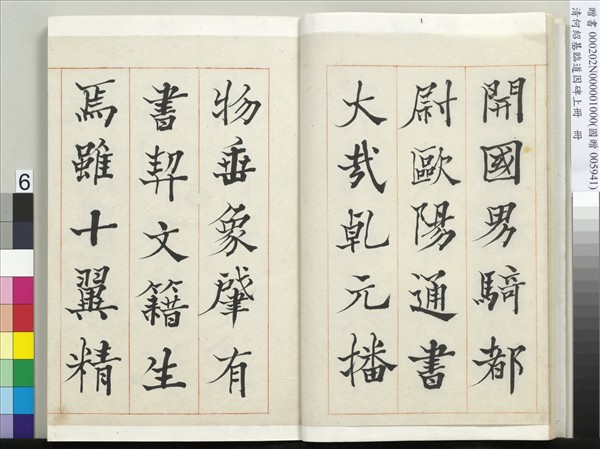 開國男騎都
尉歐陽通書
大哉乹元播
物垂象肇有
書契文籍生
焉雖十翼精
贈書 000202N000001000(國贈 005941)
清何紹基臨道因碑上冊 冊
6